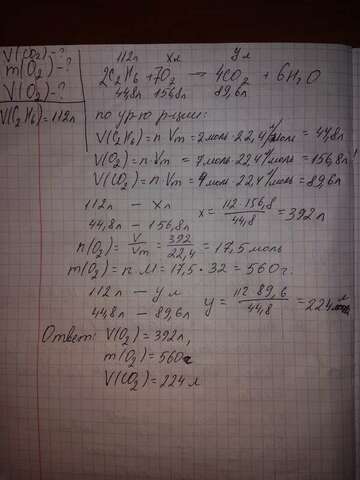 V(CO2)-?
m(O2)-?
V(O2)-?
V(C2H6)=112л
112л хл ул
2C2H6+7O2 → 4CO2 + 6H2O
44,8л 156,8л 89,6л
по ур-ю р-ции:
V(C2H6)=n·Vm=2моль·22,4л/моль=44,8л
V(O2)=n·Vm=7моль·22,4л/моль=156,8л
V(CO2)=n·Vm=4моль·22,4л/моль=89,6л
112л — хл
44,8л — 156,8л
x=112·156,8/44,8=392л
n(O2)=V/Vm=392/22,4=17,5моль
m(O2)=n·M=17,5·32=560г.
112л — ул
44,8л — 89,6л
y=112·89,6/44,8=224л
Ответ: V(O2)=392л,
m(O2)=560г
V(CO2)=224л